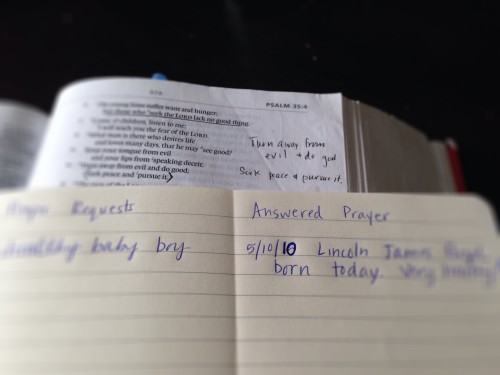 676
PSALM 35:4
young lions suffer want and hunger;
but those who seek the LORD lack no good thing.
children, listen to me;
I will teach you the fear of the LORD.
What man is there who desires life
and loves many days, that he may see good?
your tongue from evil
and your lips from speaking deceit.
away from evil and do good;
Seek peace and pursue it.
Turn away from
evil + do good
Seek peace + pursue it.
Requests
healthy baby boy
Answered Prayer
5/10/10 Lincoln James
born today. Very healthy!